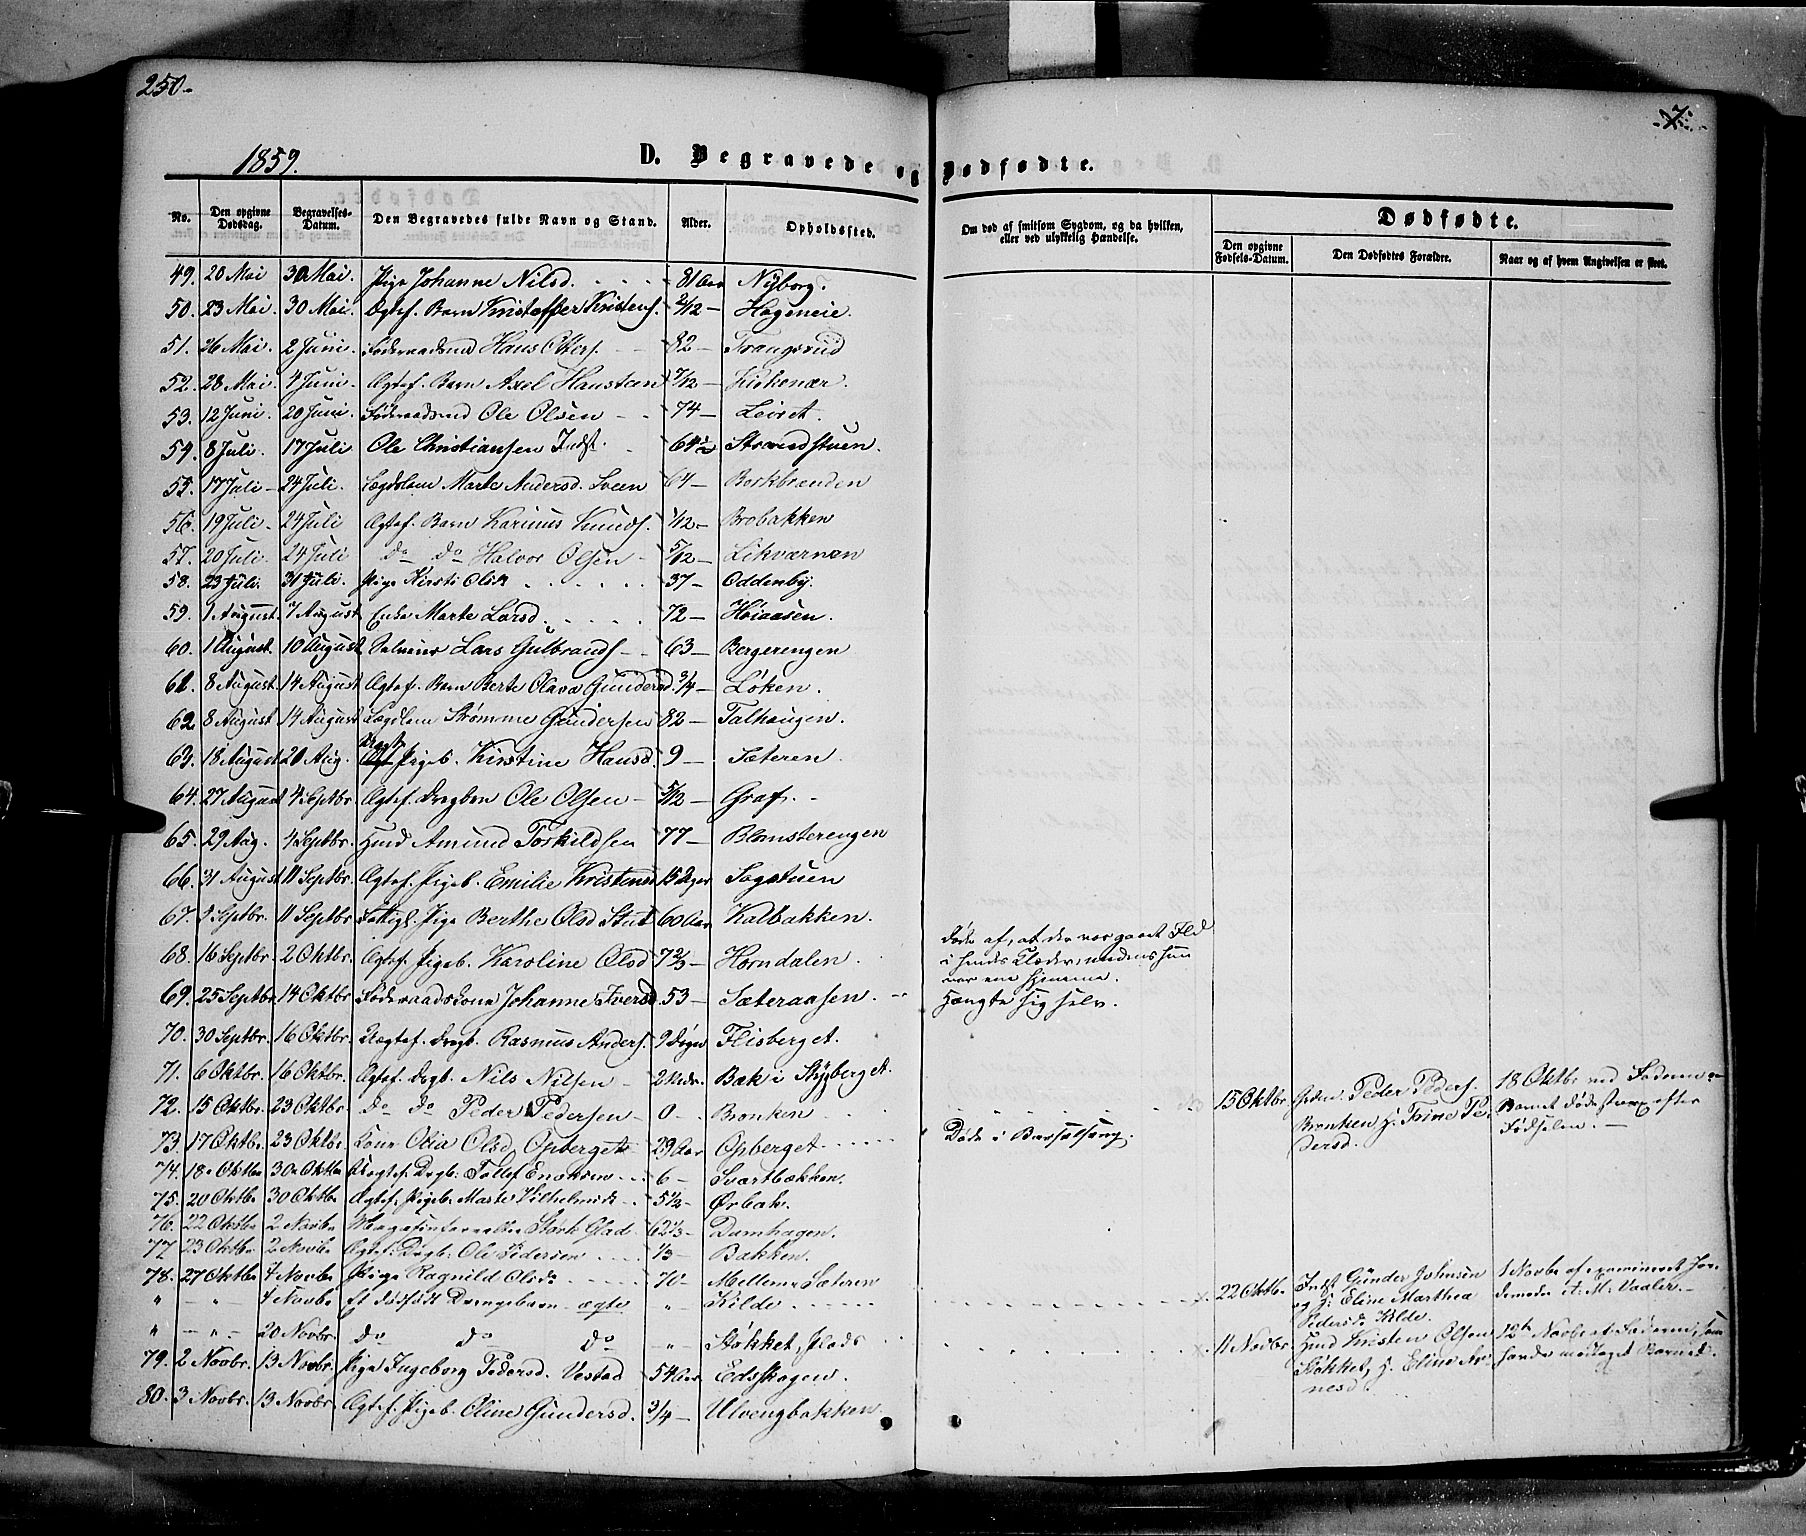 250.
7.
1859.
D. Begravede og Dødfødte.
No. Den opgivne Dødsdag. Begravelses-Datum. Den Begravedes fulde Navn og Stand. Alder. Opholdssted. Om død af smitsom Sygdom, og da hvilken, eller ved ulykkelig Hændelse. Dødfødte.
Den opgivne Fødsels-Datum. Den Dødfødtes Forældre. Naar og af hvem Angivelsen er skeet.
49. 20 Mai 30 Mai. Pige Johanne Nilsd. 81 Aar Nyborg.
50. 23 Mai. 30 Mai. Ægtef. Barn Kristoffer Kristens. 2/12 — Hageneie.
51. 26 Mai. 2 Juni. Føderaadsmd Hans Olsers. 82 — Trangsrud
52. 28 Mai. 4 Juni. Ægtef. Barn Axel Haustcen 7/12 — Kirkenær.
53. 12 Juni. 20 Juni. Føderaadsmd Ole Olsen 74 — Leiret.
54. 8 Juli. 17 Juli Ole Christiansen Indst. 64 1/2 Strandstuen.
55. 17 Juli 24 Juli. Lægdslem Marte Andersd. Sveen 64 — Borkbranden
56. 19 Juli. 24 Juli Ægtef. Barn Karinus Knuds. 1/12 — Brobakken
57. 20 Juli. 24 Juli do do Halvor Olsen 5/12 — Likværnen
58. 23 Juli. 31 Juli. Pige Kirsti Olsd. 37 — Oddenby.
59. 1 August. 7 August Enke Marte Larsd. 72 — Høiaasen.
60. 1 August. 10 August Selveier Lars Gulbrands. 63 — Bergerengen
61. 8 August. 14 August Ægtef. Barn Berte Olava Gundersd. 3/4 — Løken.
62 8 August 14 August Lægdslem Strømme Gundersen 82 — Talhaugen.
63. 18 August 21 Aug. Ægtf. Pigeb. Kirstine Hansd. 9 — Sæteren.
64. 27 August 4 Septbr. Ægtef. Drgbrn Ole Olsen 3/12 — Graf.
65. 29 Aug. 4 Septbr. Husmd Amund Torkildsen 77 — Blomsterengen
66. 31 August 11 Septbr. Ægtef. Pigeb. Emilie Kristensd 15 Dger Sagstuen
67. 5 Septbr. 11 Septbr Fattigl. Pige Berthe Olsd Stut 60 Aar Kalbakken.
68. 16 Septbr. 2 Oktbr. Ægtef. Pigeb. Karoline Olsd 7 2/3 — Horndalen. Døde af, at der var gaaet Ild
i hendes Klæder, medens hun
var ene hjemme.
69. 25 Septbr 14 Oktbr. Føderaadskone Johanne Iversd. 53 — Sæteraasen. Hængte sig selv.
70. 30 Septbr. 16 Oktbr. Uægtef. Drgb. Rasmus Anders. 9 Døgn Flisberget.
71. 6 Oktbr. 16 Oktbr. Ægtef. Drgb. Nils Nilsen 2 Mdr. Bæk i Skyberget.
72. 15 Oktbr. 23 Oktbr. do do Peder Pedersen 0 Bronken 15 Oktbr. Peder Peders. Bronken H. Trine Pedersd. 18 Oktbr ved Faderen. Barnet døde strax efter Fødselen.
73. 17 Oktbr. 23 Oktbr. Kone Olia Olsd. Opberget 29 Aar Opberget Døde i Barselseng.
74. 18 Oktbr 30 Oktbr Uægtef. Drgb: Tollef Eneksen 6 — Svartbækken.
75. 20 Oktbr 30 Oktbr Ægtef. Pigeb: Marte Vilhelmsd. 5 1/2 — Ørbæk.
76. 22 Oktbr 2 Novbr Magasinforvalter Størk Glad 62 1/3 — Damhagen.
77. 23 Oktbr 2 Novbr. Ægtef. Drgb: Ole Pedersen 1/3 — Bakken.
78. 27 Oktbr 4 Novbr Pige Ragnild Olsd. 70 — Mellem Sæteren
" — " — 4 Novbr Et dødfødt Drengebarn ægte " Kilde. 22 Oktbr. Indst. Gunder Johnsen og H: Eline Marthea Pedersd. Kilde. 1 Novbr af examineret Jordemoder A. M. Vaaler.
" — " — 20 Novbr. do do do " Støkket, Plads 11 Novbr. Husmd Kristen Olsen Støkket, H. Eline Arnesd. 12te Novbr af Faderen, som havde modtaget Barnet.
79. 2 Novbr. 13 Novbr. Pige Ingeborg Pedersd. Vestad 54 Aar Edsskogen.
80. 3 Novbr. 13 Novbr. Ægtef. Pigeb. Oline Gundersd. 3/4 — Ulvengbakken.